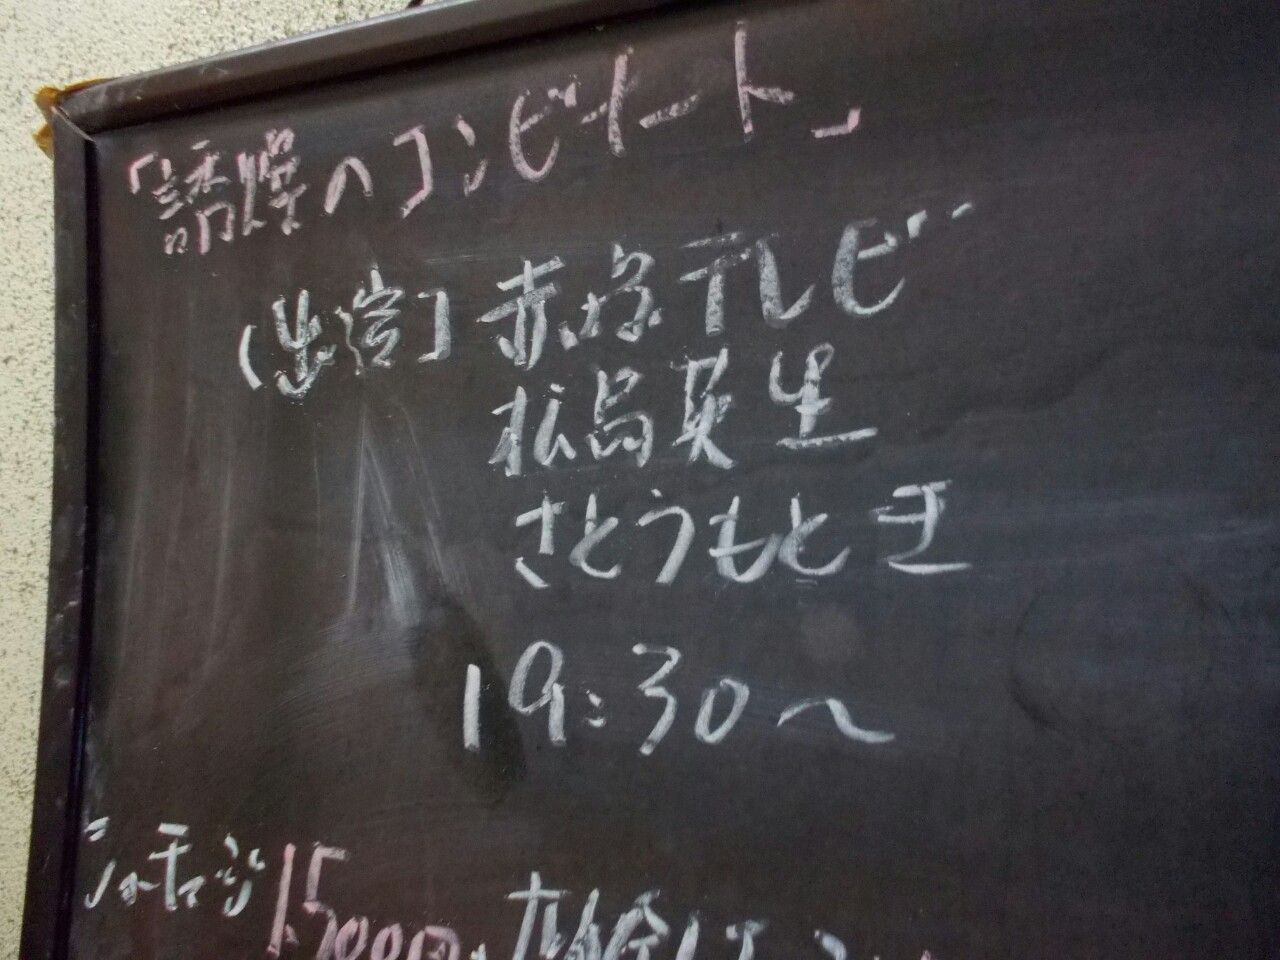 「誘爆のコンビナート」
(出演) 赤塚テレビ
松島英生
さとうもとき
19:30〜
ミュージックチャージ 1500円